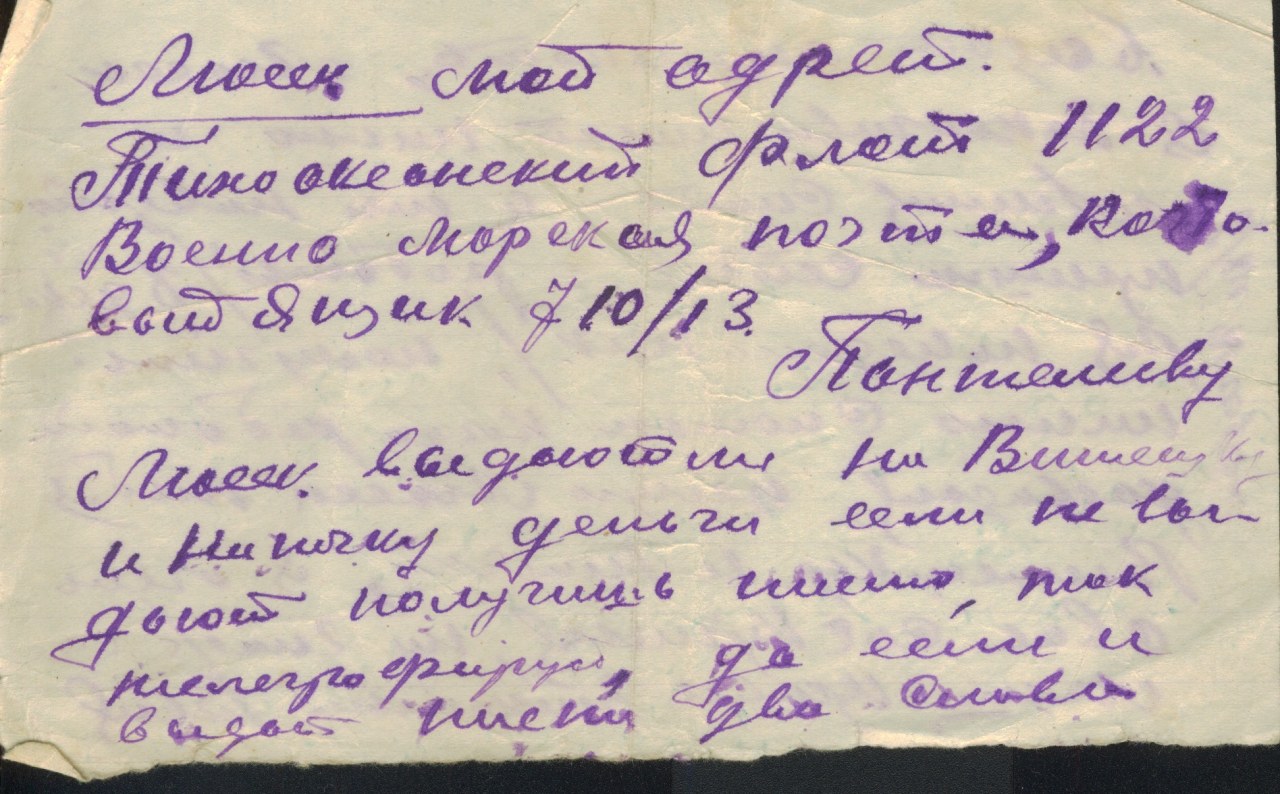 Люсек мой адрест.
Тихоокеанский флот 1122
Военно морская почта, Почто-
вый ящик 710/13.
Пантелиеву
Люсек. выдают ли на Витечку
и Ниночку деньги если не вы-
дают получишь письмо, так
телеграфируй, да если и
выдают пиши два слова